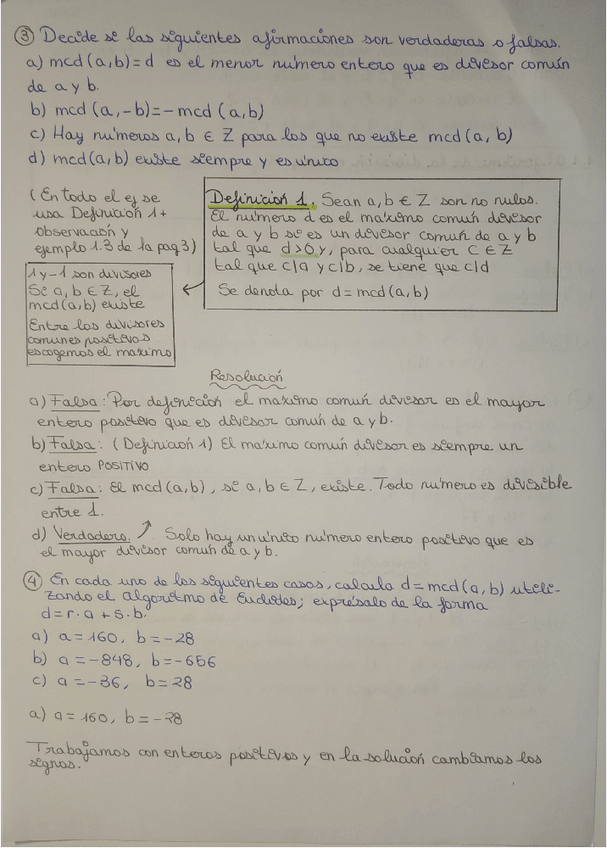 ③ Decide si las siguientes afirmaciones son verdaderas o falsas.
a) mcd(a,b)=d es el menor número entero que es divisor común
de a y b.
b) mcd (a,-b)=-mcd (a,b)
c) Hay números a, b ∈ Z para los que no existe mcd(a, b)
d) mcd(a,b) existe siempre y es único
(En todo el ej se
usa Definición 1+
observación y
ejemplo 1.3 de la pag 3)
Definición 1. Sean a, b ∈ Z son no nulos.
El número d es el máximo común divisor
de a y b si es un divisor común de a y b
tal que d>0 y, para cualquier c ∈ Z
tal que c/a y c/b, se tiene que c/d
Se denota por d=mcd(a,b)
1 y -1 son divisores
Si a, b ∈ Z, el
mcd(a,b) existe
Entre los divisores
comunes positivos
escogemos el máximo
Resolución
a) Falsa: Por definición el máximo común divisor es el mayor
entero positivo que es divisor común de a y b.
b) Falsa: (Definición 1) El máximo común divisor es siempre un
entero POSITIVO
c) Falsa: El mcd(a,b), si a, b ∈ Z, existe. Todo número es divisible
entre 1.
d) Verdadero. Solo hay un único número entero positivo que es
el mayor divisor común de a y b.
④ En cada uno de los siguientes casos, calcula d=mcd(a,b) utili-
zando el algoritmo de Euclides; exprésalo de la forma
d=r·a+s·b.
a) a=160, b=-28
b) a=-848, b=-656
c) a=-36, b=28
a) a=160, b=-28
Trabajamos con enteros positivos y en la solución cambiamos los
signos.